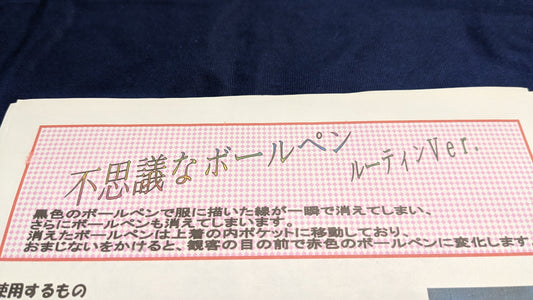 不思議なボールペン
ルーティンVer.
黒色のボールペンで服に描いた線が一瞬で消えてしまい、
さらにボールペンも消えてしまいます。
消えたボールペンは上着の内ポケットに移動しており、
おまじないをかけると、観客の目の前で赤色のボールペンに変化します
使用するもの